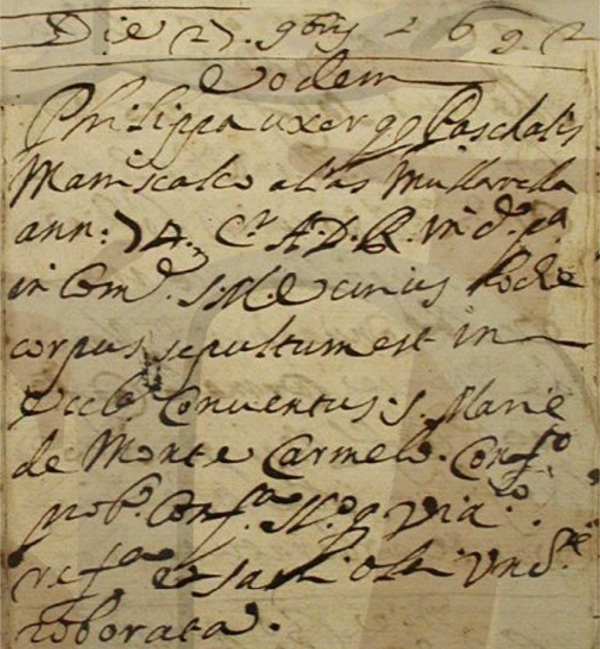 Die 27. 9bris 1692
Eodem
Philippa uxor qq Paschalis
Maniscalco alias Mullareda
ann: 74. Cr A. D. R. in d.o p.a
in Com.e S. M. E cuius hodie
corpus sepultum est in
Eccl.a Conventus S. Marie
de Monte Carmelo. Conf.o
prob.o Conf.a SS.o q Via.co
ref.a et sacri Olei Und.ne
roborata.